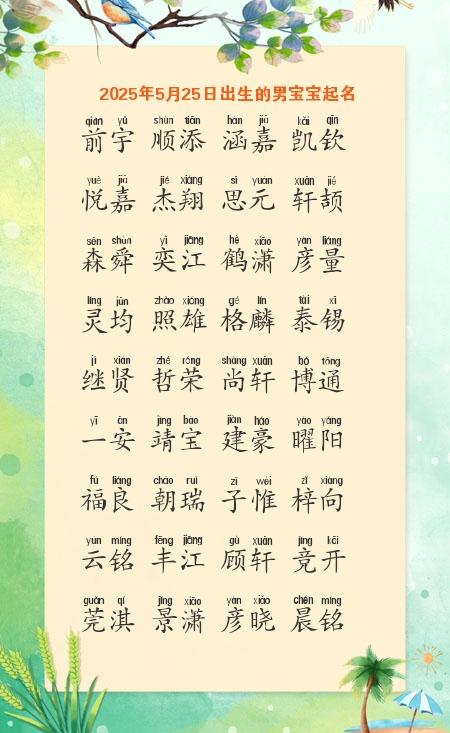 2025年5月25日出生的男宝宝起名
qián yǔ shùn tiān hán jiā kǎi qīn
前宇 顺添 涵嘉 凯钦
yuè jiā jié xiáng sī yuán xuān jié
悦嘉 杰翔 思元 轩颉
sēn shùn yì jiāng hè xiāo yàn liáng
森舜 奕江 鹤潇 彦量
líng jūn zhào xióng gé lín tài xī
灵均 照雄 格麟 泰锡
jì xián zhé róng shàng xuān bó tōng
继贤 哲荣 尚轩 博通
yī ān jìng bǎo jiàn háo yào yáng
一安 靖宝 建豪 曜阳
fú liáng cháo ruì zǐ wéi zǐ xiàng
福良 朝瑞 子惟 梓向
yún míng fēng jiāng gù xuān jìng kāi
云铭 丰江 顾轩 竞开
guǎn qí jǐng xiāo yàn xiǎo chén míng
莞淇 景潇 彦晓 晨铭